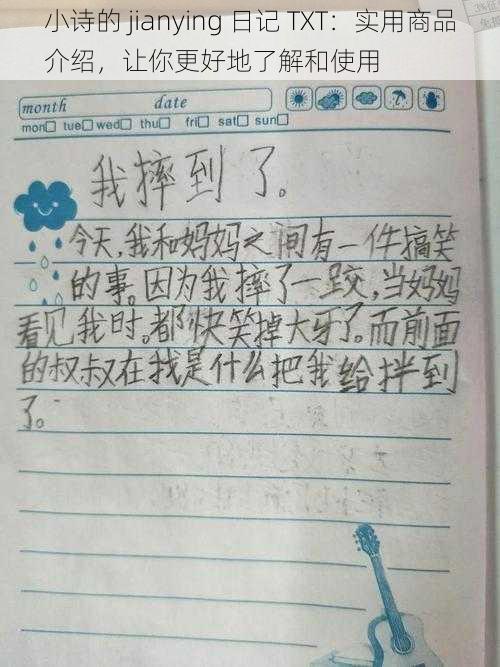 小诗的 jianying 日记 TXT：实用商品
介绍，让你更好地了解和使用
month date
mon□ tue□ wed□ thu□ fri□ sat□ sun□
我摔到了。
今天,我和妈妈之间有一件搞笑
的事。因为我摔了一跤,当妈妈
看见我时。都快笑掉大牙了。而前面
的叔叔在找是什么把我给拌到
了。